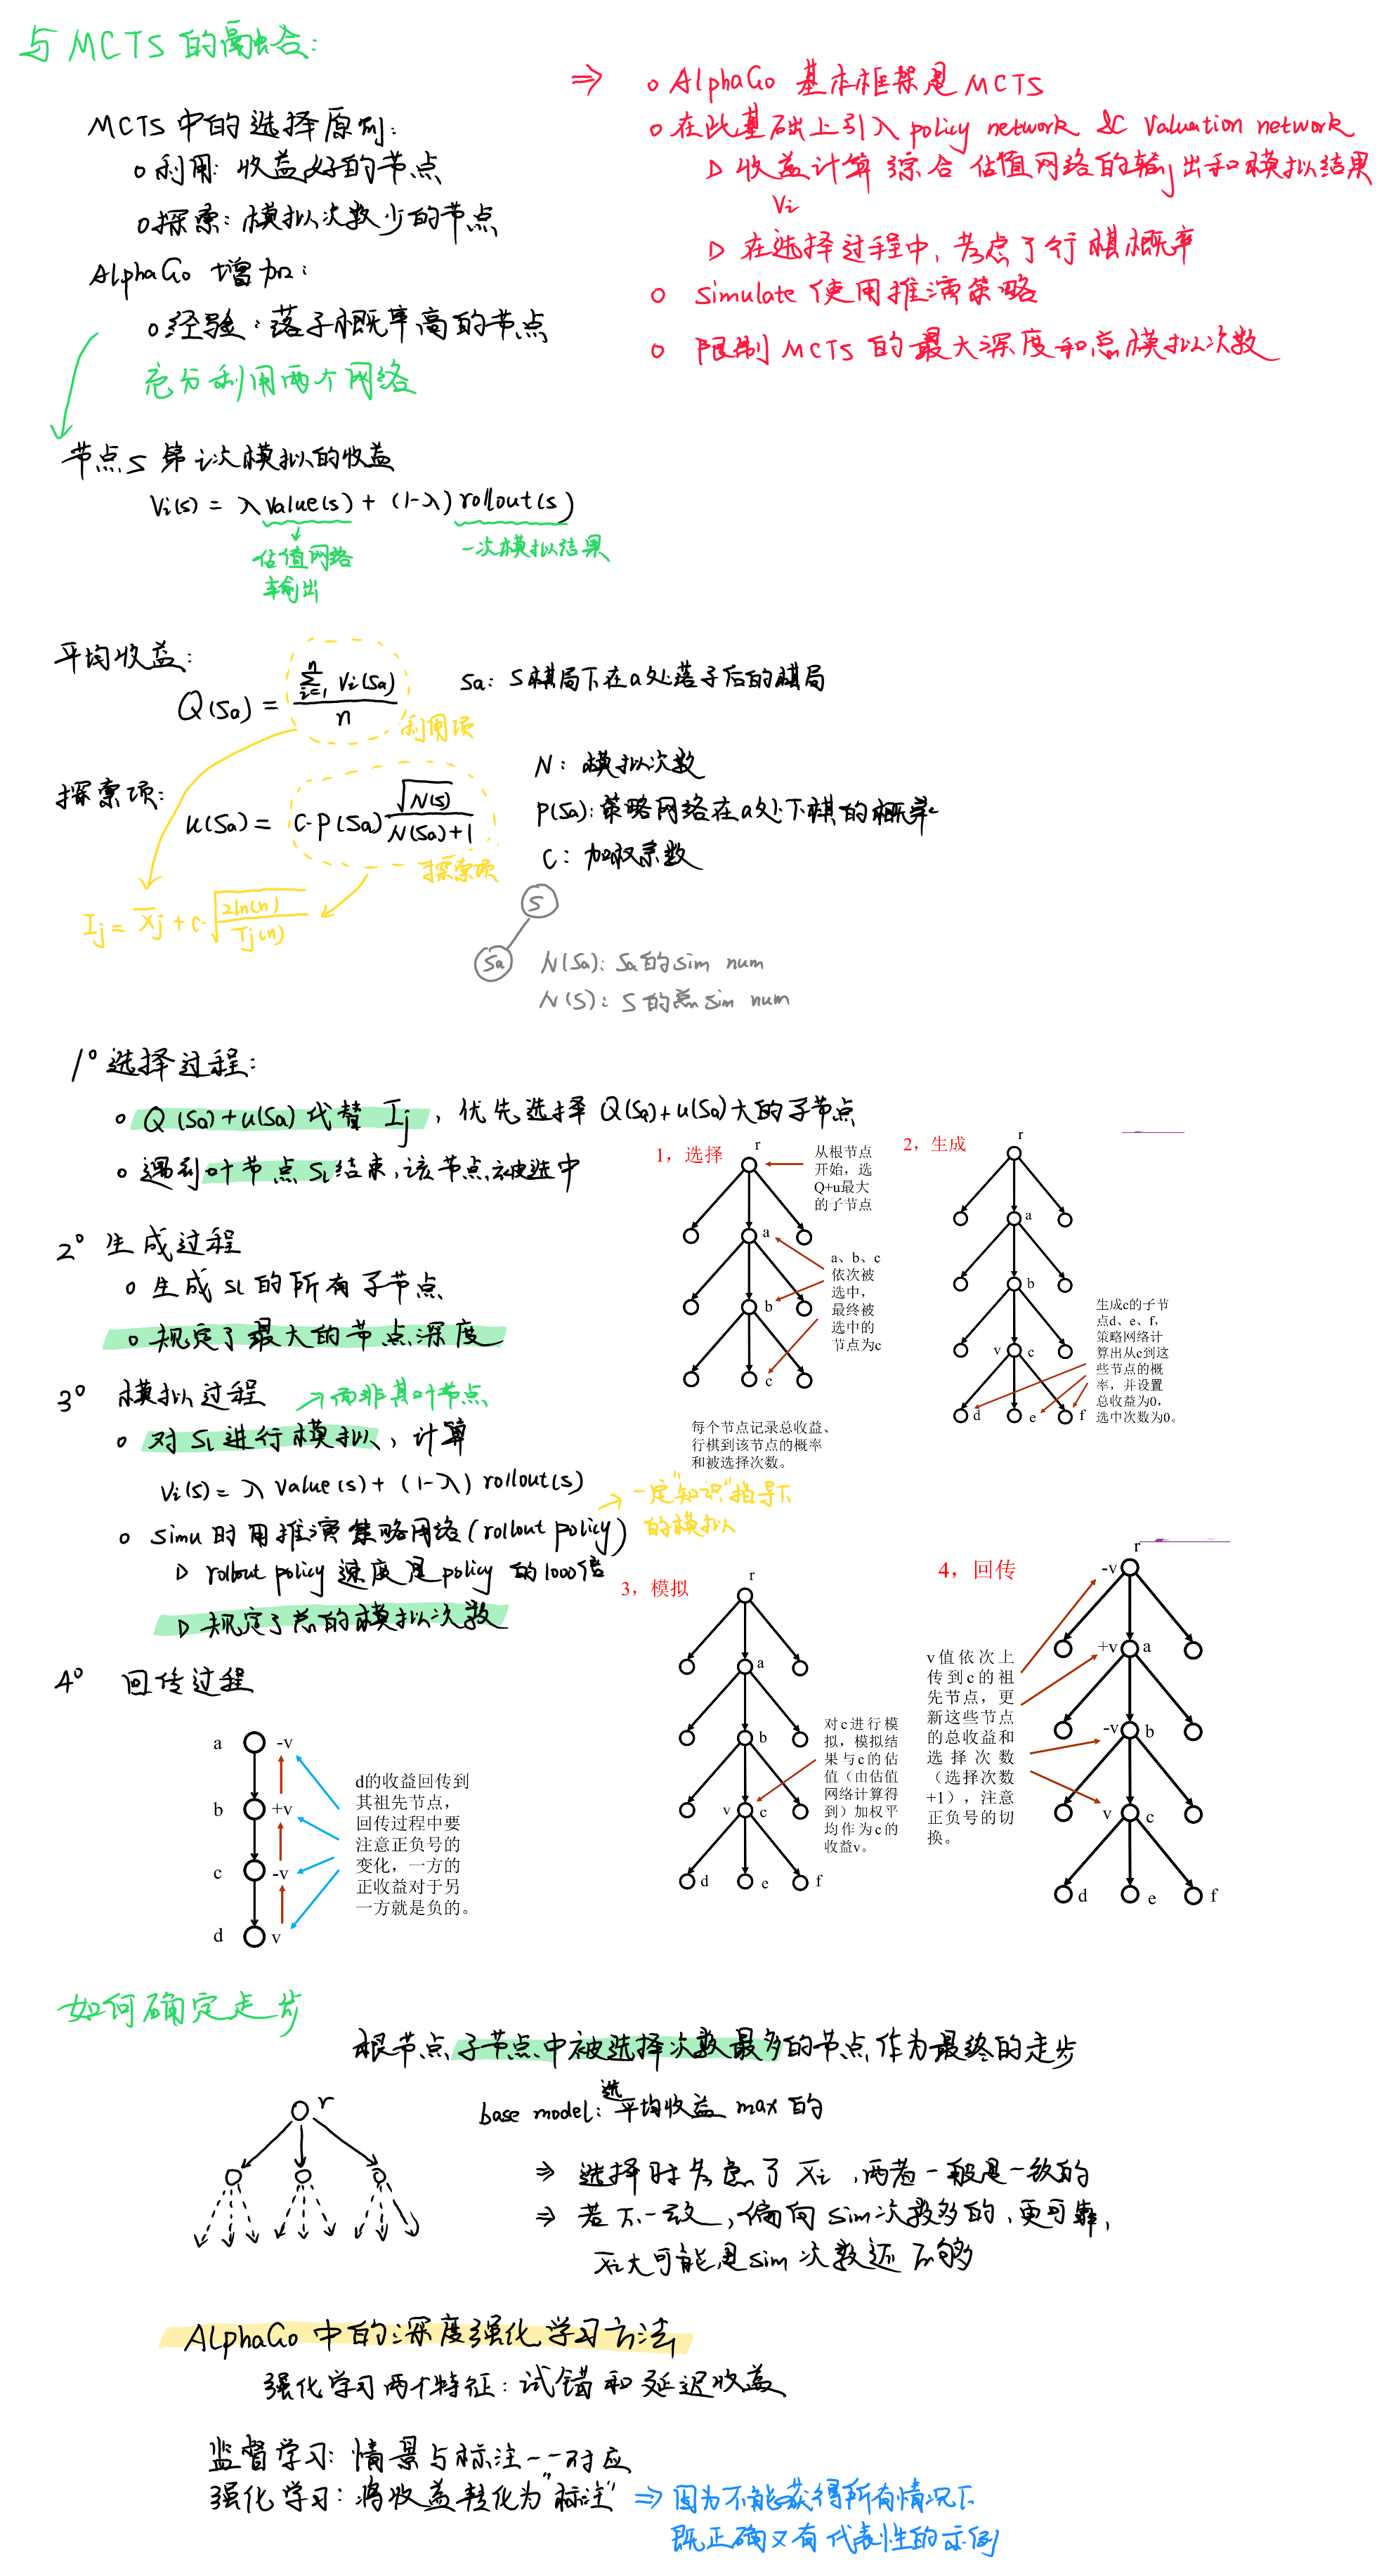 与MCTS的融合:
MCTS中的选择原则:
o利用: 收益好的节点
o探索: 模拟次数少的节点
AlphaGo 增加:
o经验: 落子概率高的节点
充分利用两个网络
⇒ o AlphaGo 基本框架是MCTS
o在此基础上引入 policy network & Valuation network
▷ 收益计算综合估值网络的输出和模拟结果
Vi
▷ 在选择过程中, 考虑了行棋概率
o simulate 使用推演策略
o 限制MCTS的最大深度和总模拟次数
节点S 第i次模拟的收益
Vi(s) = λ value(s) + (1-λ) rollout(s)
估值网络
输出
一次模拟结果
平均收益:
Q(Sa) = Σ(i=1→n) Vi(Sa) / n
利用项
Sa: S棋局下在a处落子后的棋局
探索项:
u(Sa) = c·p(Sa) √N(s) / (N(Sa)+1)
探索项
N: 模拟次数
P(Sa): 策略网络在a处下棋的概率
C: 加权系数
Ij = X̄j + c·√(2ln(n) / Tj(n))
S
Sa
N(Sa): Sa的sim num
N(S): S的总sim num
1° 选择过程:
o Q(Sa)+u(Sa)代替 Ij, 优先选择 Q(Sa)+u(Sa)大的子节点
o 遇到叶节点 SL结束, 该节点被选中
2° 生成过程
o 生成 SL 的所有子节点
o 规定了最大的节点深度
3° 模拟过程
→而非其叶节点
o 对SL进行模拟, 计算
Vi(s) = λ value(s) + (1-λ) rollout(s)
→一定"知识"指导下
的模拟
o simu时用推演策略网络(rollout policy)
▷ rollout policy 速度是policy 的1000倍
▷ 规定了总的模拟次数
4° 回传过程
1，选择
r
从根节点
开始，选
Q+u最大
的子节点
a
a、b、c
依次被
选中，
最终被
选中的
节点为c
b
c
每个节点记录总收益、
行棋到该节点的概率
和被选择次数。
2，生成
r
a
b
v c
生成c的子节
点d、e、f，
策略网络计
算出从c到这
些节点的概
率，并设置
总收益为0，
选中次数为0。
d e f
3，模拟
r
a
b
v c
对c进行模
拟，模拟结
果与c的估
值（由估值
网络计算得
到）加权平
均作为c的
收益v。
d e f
4，回传
r
-v
+v a
-v b
v c
v值依次上
传到c的祖
先节点，更
新这些节点
的总收益和
选择次数
（选择次数
+1），注意
正负号的切
换。
d e f
a -v
b +v
c -v
d v
d的收益回传到
其祖先节点，
回传过程中要
注意正负号的
变化，一方的
正收益对于另
一方就是负的。
如何确定走步
根节点子节点中被选择次数最多的节点作为最终的走步
r
base model: 选平均收益 max 的
⇒ 选择时考虑了 X̄i, 两者一般是一致的
⇒ 若不一致, 偏向sim次数多的, 更可靠,
X̄i大可能是sim次数还不够
AlphaGo 中的深度强化学习方法
强化学习两个特征: 试错和延迟收益
监督学习: 情景与标注一一对应
强化学习: 将收益转化为"标注" ⇒ 因为不能获得所有情况下
既正确又有代表性的示例